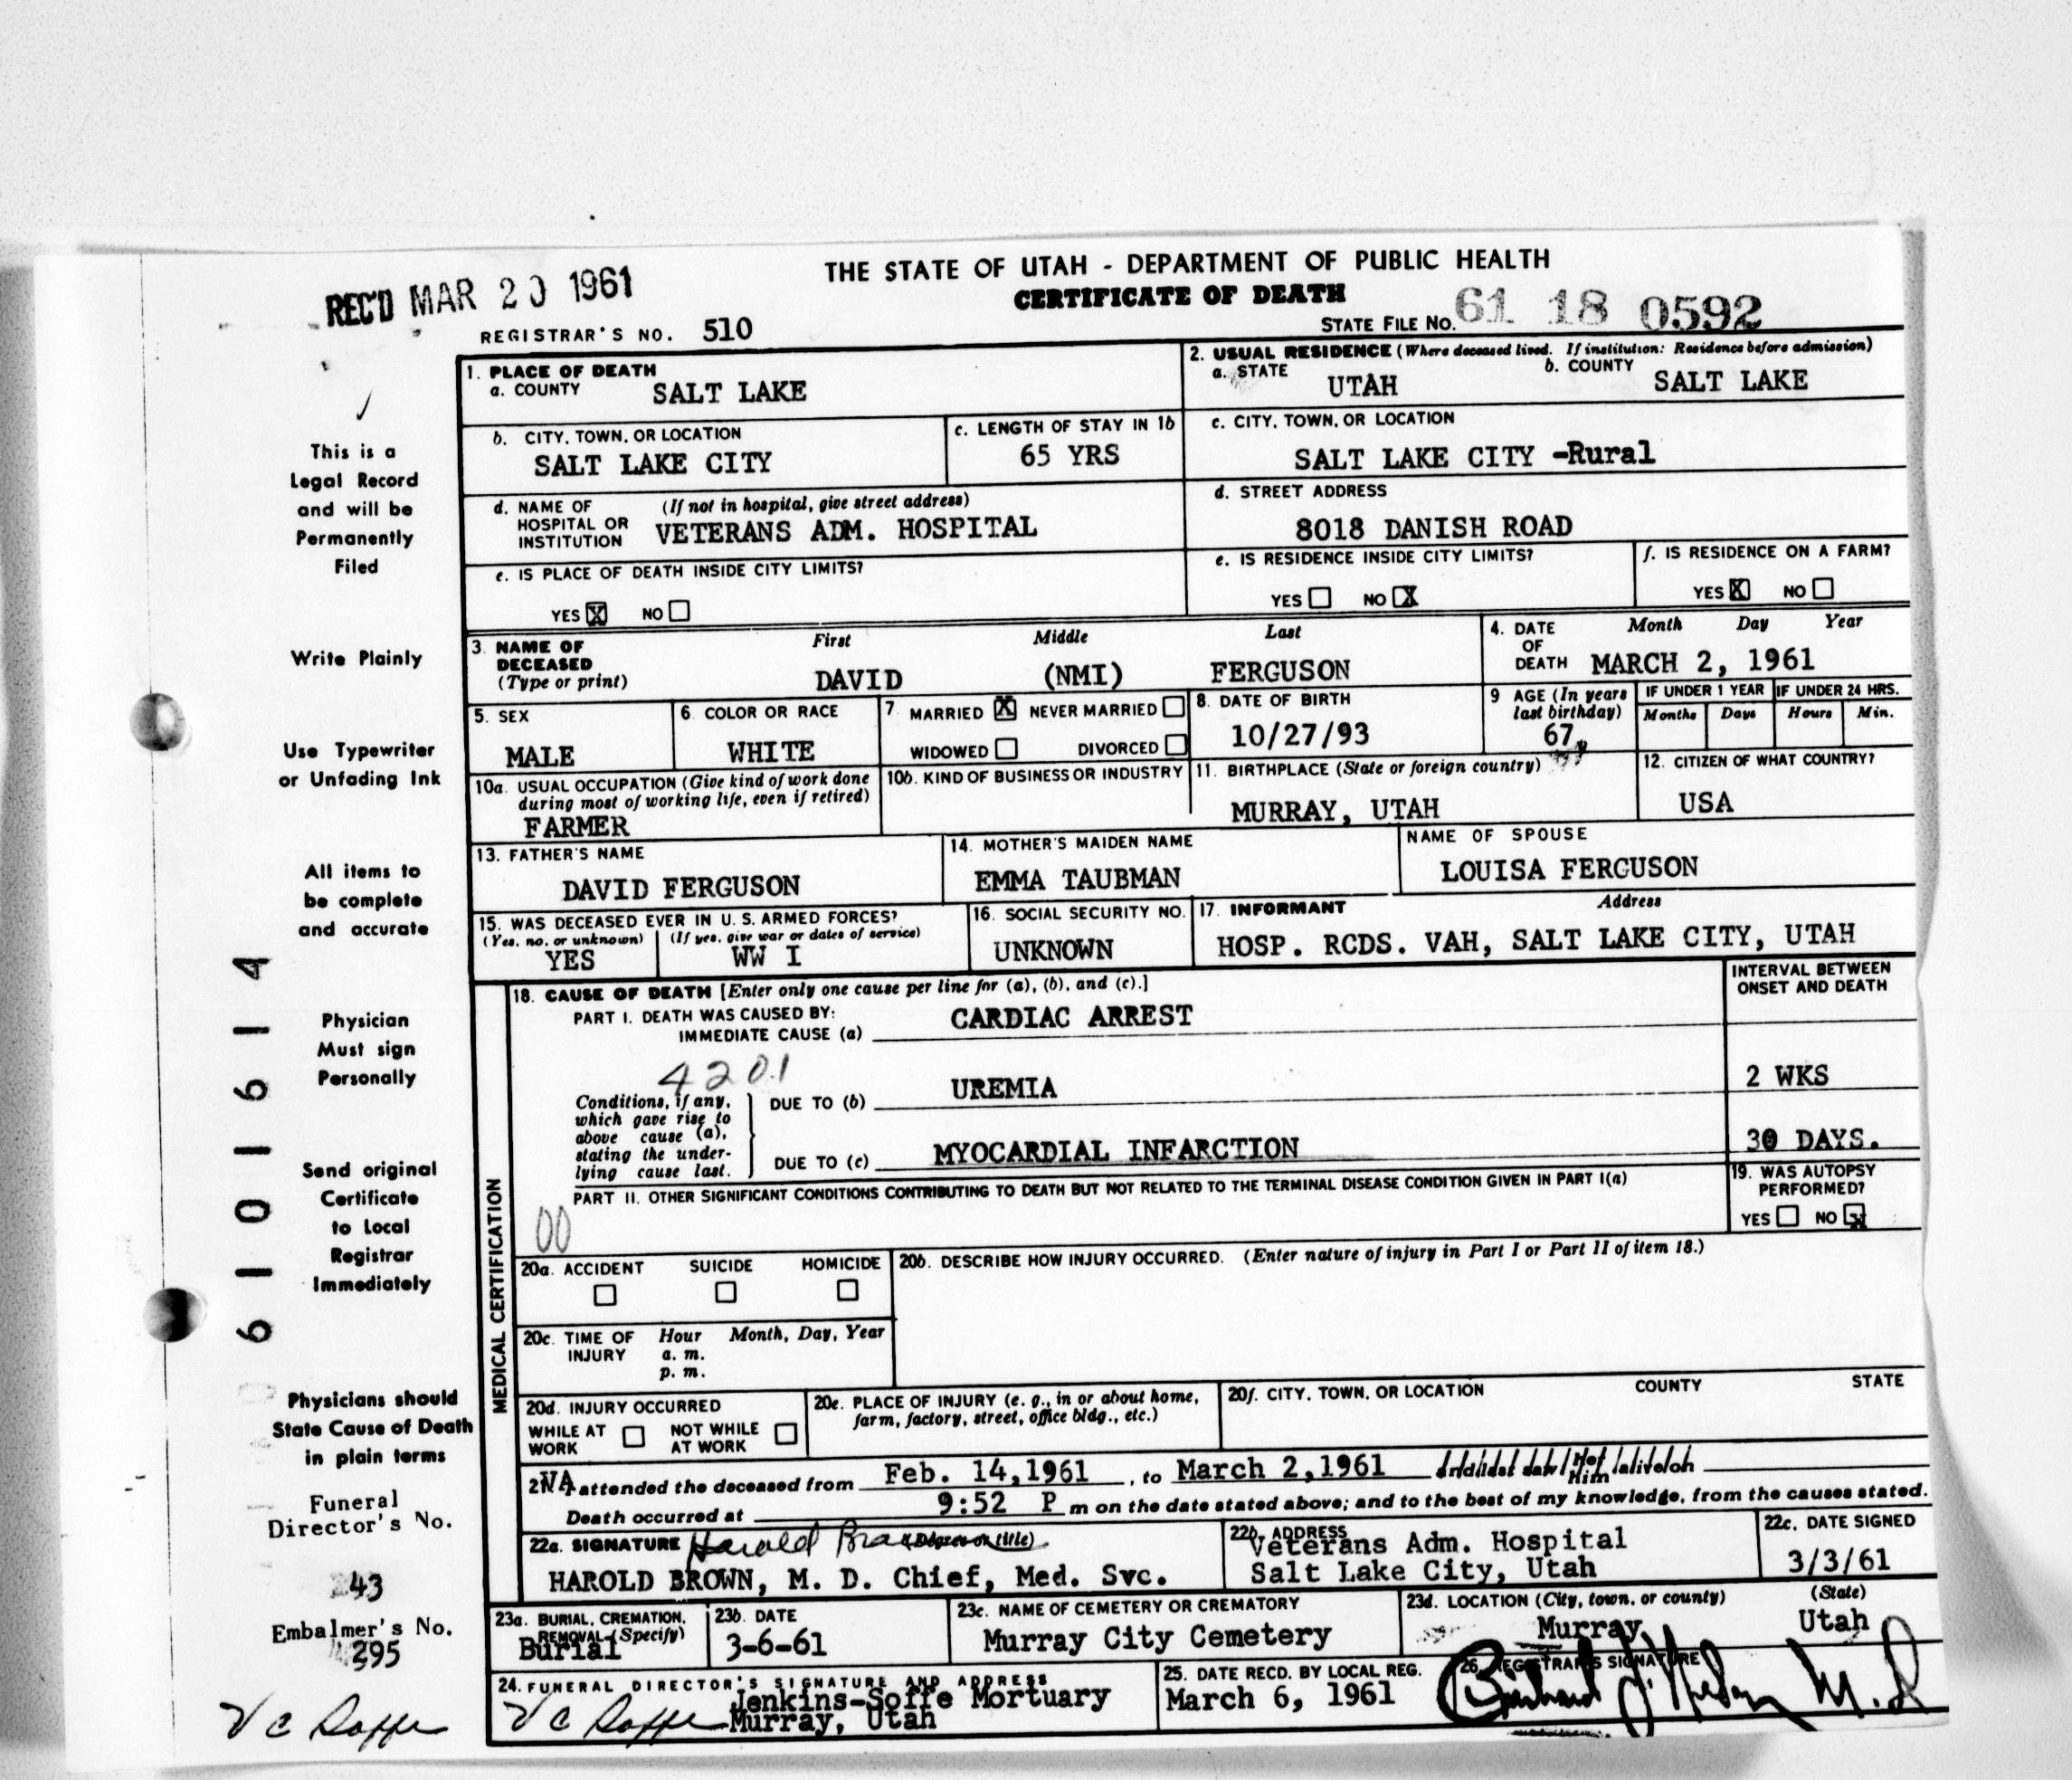 THE STATE OF UTAH - DEPARTMENT OF PUBLIC HEALTH
CERTIFICATE OF DEATH
REC'D MAR 20 1961
REGISTRAR'S NO. 510
STATE FILE NO. 61 18 0592
This is a
Legal Record
and will be
Permanently
Filed
Write Plainly
Use Typewriter
or Unfading Ink
All items to
be complete
and accurate
Physician
Must sign
Personally
Send original
Certificate
to Local
Registrar
Immediately
Physicians should
State Cause of Death
in plain terms
Funeral
Director's No.
43
Embalmer's No.
295
V C Soffe
6101614
1. PLACE OF DEATH
a. COUNTY SALT LAKE
2. USUAL RESIDENCE (Where deceased lived. If institution: Residence before admission)
a. STATE UTAH b. COUNTY SALT LAKE
b. CITY, TOWN, OR LOCATION
SALT LAKE CITY
c. LENGTH OF STAY IN 1b
65 YRS
c. CITY, TOWN, OR LOCATION
SALT LAKE CITY -Rural
d. NAME OF HOSPITAL OR INSTITUTION (If not in hospital, give street address)
VETERANS ADM. HOSPITAL
d. STREET ADDRESS
8018 DANISH ROAD
e. IS PLACE OF DEATH INSIDE CITY LIMITS?
YES X NO
e. IS RESIDENCE INSIDE CITY LIMITS?
YES NO X
f. IS RESIDENCE ON A FARM?
YES X NO
3. NAME OF DECEASED (Type or print)
First Middle Last
DAVID (NMI) FERGUSON
4. DATE OF DEATH Month Day Year
MARCH 2, 1961
5. SEX
MALE
6. COLOR OR RACE
WHITE
7. MARRIED X NEVER MARRIED
WIDOWED DIVORCED
8. DATE OF BIRTH
10/27/93
9 AGE (In years last birthday)
67
IF UNDER 1 YEAR IF UNDER 24 HRS.
Months Days Hours Min.
10a. USUAL OCCUPATION (Give kind of work done during most of working life, even if retired)
FARMER
10b. KIND OF BUSINESS OR INDUSTRY
11. BIRTHPLACE (State or foreign country)
MURRAY, UTAH
12. CITIZEN OF WHAT COUNTRY?
USA
13. FATHER'S NAME
DAVID FERGUSON
14. MOTHER'S MAIDEN NAME
EMMA TAUBMAN
NAME OF SPOUSE
LOUISA FERGUSON
15. WAS DECEASED EVER IN U. S. ARMED FORCES?
(Yes, no, or unknown) (If yes, give war or dates of service)
YES WW I
16. SOCIAL SECURITY NO.
UNKNOWN
17. INFORMANT Address
HOSP. RCDS. VAH, SALT LAKE CITY, UTAH
MEDICAL CERTIFICATION
18. CAUSE OF DEATH [Enter only one cause per line for (a), (b), and (c).]
INTERVAL BETWEEN ONSET AND DEATH
PART I. DEATH WAS CAUSED BY:
IMMEDIATE CAUSE (a) CARDIAC ARREST
4201
Conditions, if any, which gave rise to above cause (a), stating the underlying cause last.
DUE TO (b) UREMIA 2 WKS
DUE TO (c) MYOCARDIAL INFARCTION 30 DAYS.
PART II. OTHER SIGNIFICANT CONDITIONS CONTRIBUTING TO DEATH BUT NOT RELATED TO THE TERMINAL DISEASE CONDITION GIVEN IN PART I(a)
00
19. WAS AUTOPSY PERFORMED?
YES NO X
20a. ACCIDENT SUICIDE HOMICIDE
20b. DESCRIBE HOW INJURY OCCURRED. (Enter nature of injury in Part I or Part II of item 18.)
20c. TIME OF INJURY Hour Month, Day, Year
a. m.
p. m.
20d. INJURY OCCURRED
WHILE AT WORK NOT WHILE AT WORK
20e. PLACE OF INJURY (e. g., in or about home, farm, factory, street, office bldg., etc.)
20f. CITY, TOWN, OR LOCATION COUNTY STATE
21. VA attended the deceased from Feb. 14,1961, to March 2,1961
Death occurred at 9:52 P m on the date stated above; and to the best of my knowledge, from the causes stated.
22a. SIGNATURE (Degree or title)
HAROLD BROWN, M. D. Chief, Med. Svc.
22b. ADDRESS
Veterans Adm. Hospital
Salt Lake City, Utah
22c. DATE SIGNED
3/3/61
23a. BURIAL, CREMATION, REMOVAL (Specify)
Burial
23b. DATE
3-6-61
23c. NAME OF CEMETERY OR CREMATORY
Murray City Cemetery
23d. LOCATION (City, town, or county) (State)
Murray, Utah
24. FUNERAL DIRECTOR'S SIGNATURE AND ADDRESS
V C Soffe Jenkins-Soffe Mortuary
Murray, Utah
25. DATE RECD. BY LOCAL REG.
March 6, 1961
26. REGISTRAR'S SIGNATURE